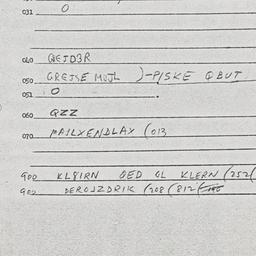 031 0
040 QEJD3R
050 GREJSE MUJL )-PISKE QBUT
051 0
060 QZZ
070 MAILXENDLAX (013
900 KL8IRN QED QL KLERN (252(
902 DEROJZDRIK (208 (812